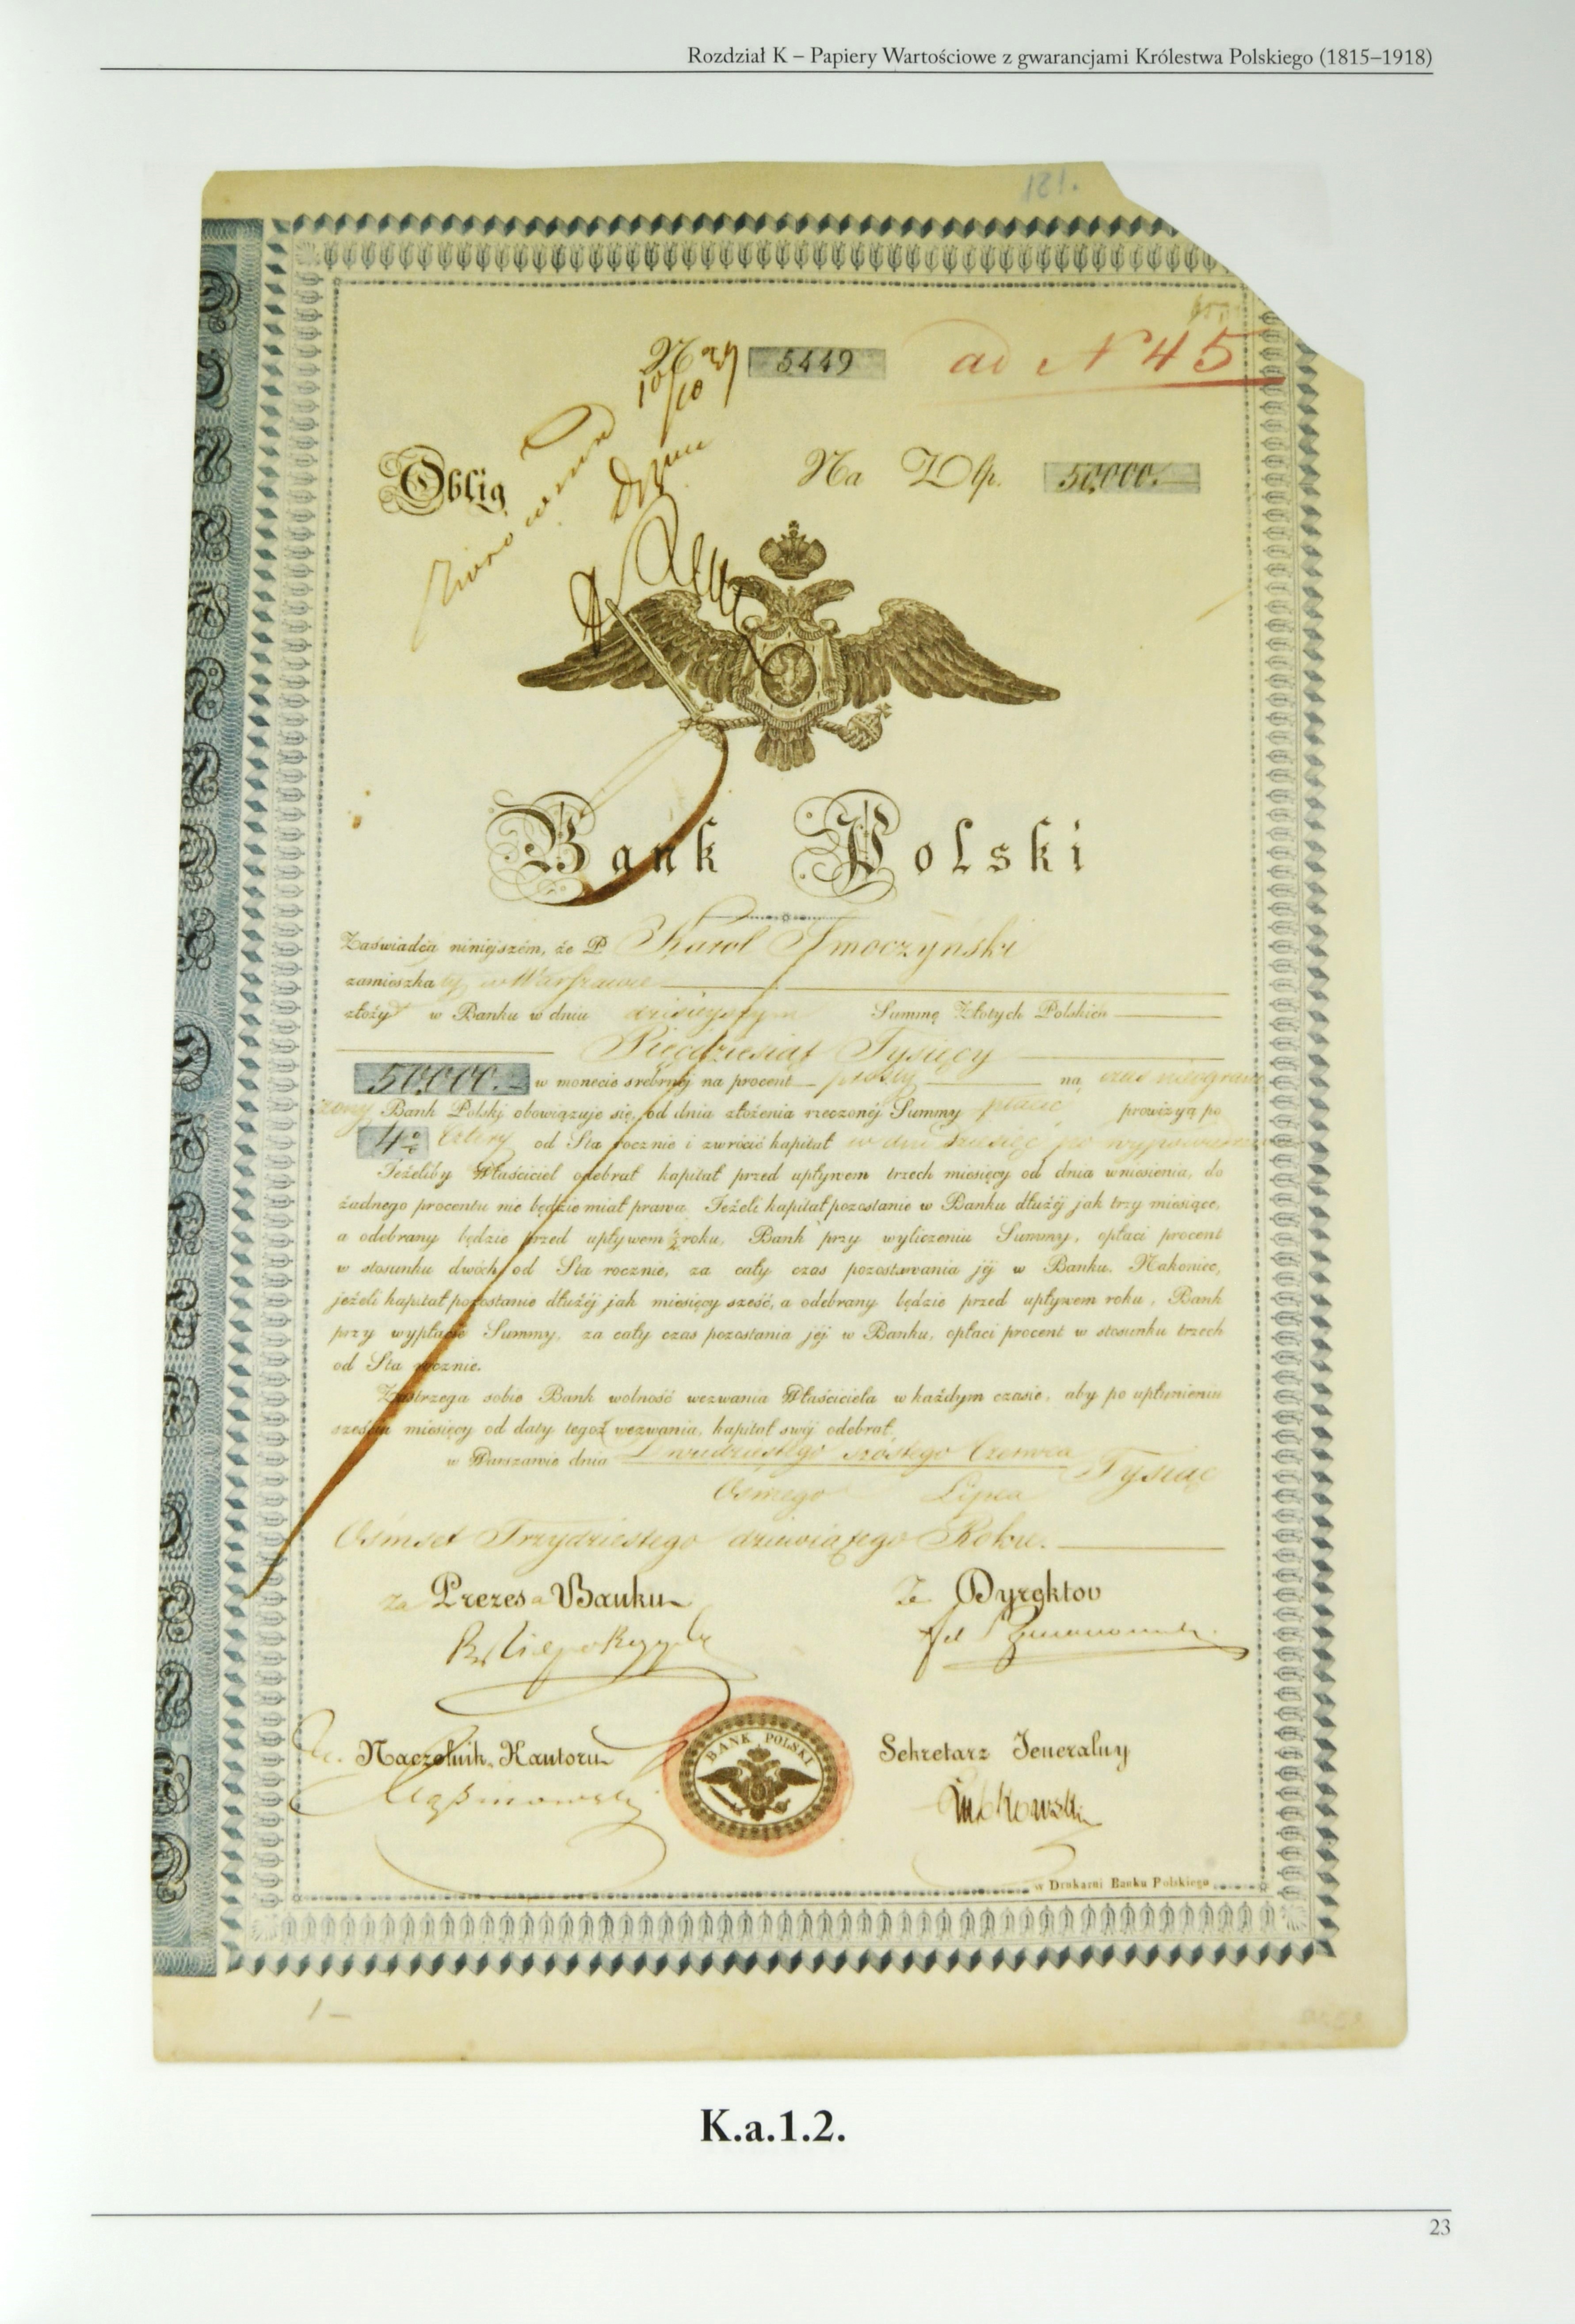 Rozdział K – Papiery Wartościowe z gwarancjami Królestwa Polskiego (1815–1918)
121.
5449 ad N 45
Oblig Na ZŁp. 50,000.
Bank Polski
Zaświadcza niniejszém, że P Karol Smoczyński
zamieszkały w Warszawie
złożył w Banku w dniu dzisieyszym Summę Złotych Polskich
Pięćdziesiąt Tysięcy
50,000. w monecie srebrnéj na procent prosty na czas nieograni
czony Bank Polski obowiązuje się, od dnia złożenia rzeczonéj Summy płacić prowizyą po
4% cztery od Sta rocznie i zwrócić kapitał w dni dziesięć po wypowiedzeniu
Jeżeliby Właściciel odebrał kapitał przed upływem trzech miesięcy od dnia wniesienia, do
żadnego procentu nie będzie miał prawa. Jeżeli kapitał pozostanie w Banku dłużéj jak trzy miesiące,
a odebrany będzie przed upływem ½ roku, Bank przy wyliczeniu Summy, opłaci procent
w stosunku dwóch od Sta rocznie, za cały czas pozostawania jéj w Banku. Nakoniec,
jeżeli kapitał pozostanie dłużéj jak miesięcy sześć, a odebrany będzie przed upływem roku, Bank
przy wypłacie Summy, za cały czas pozostania jéj w Banku, opłaci procent w stosunku trzech
od Sta rocznie.
Zastrzega sobie Bank wolność wezwania Właściciela w każdym czasie, aby po upłynieniu
sześciu miesięcy od daty tegoż wezwania, kapitał swój odebrał.
w Warszawie dnia Dwudziestego szóstego Czerwca Tysiąc
Ósmego Lipca
Ośmset Trzydziestego dziewiątego Roku.
za Prezesa Banku Dyrektor
Naczelnik Kantoru Sekretarz Jeneralny
BANK POLSKI
Łubkowski
w Drukarni Banku Polskiego
K.a.1.2.
23